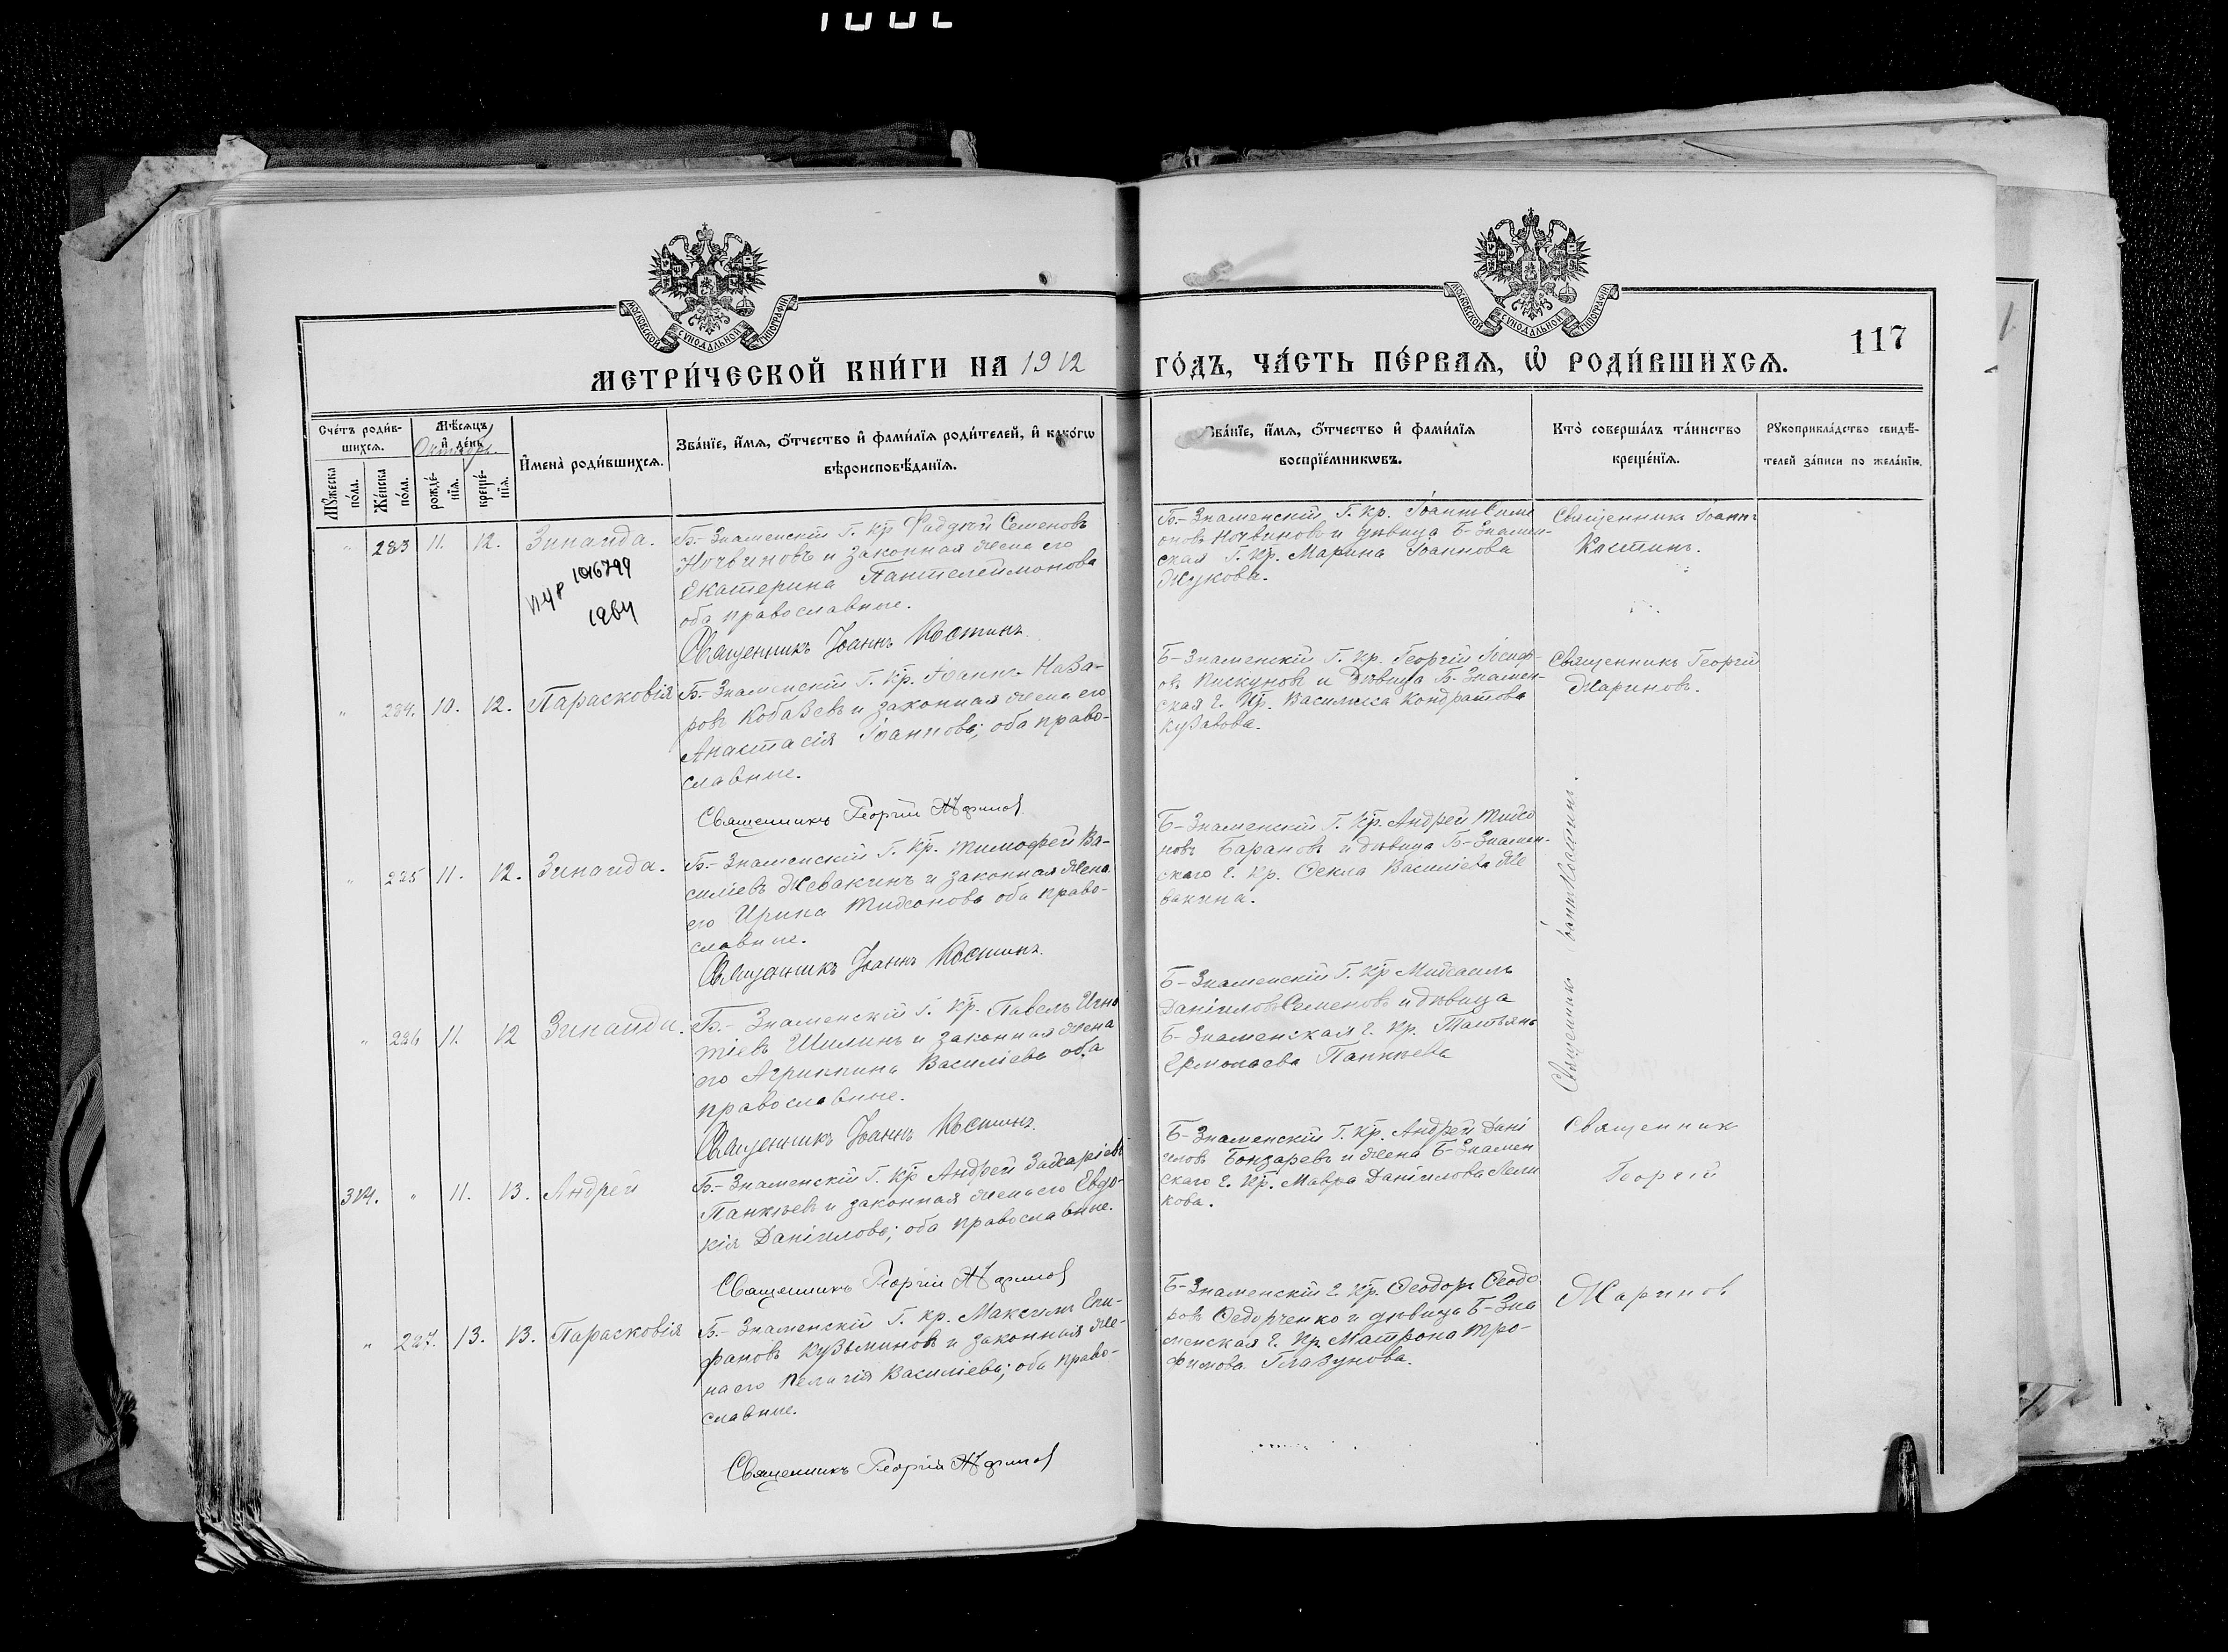 МОСКОВСКОЙ СУНОДАЛЬНОЙ ТИПОГРАФІИ
МОСКОВСКОЙ СУНОДАЛЬНОЙ ТИПОГРАФІИ
117
МЕТРИ́ЧЕСКОЙ КНИ́ГИ НА 1912
ГО́ДЪ, ЧА́СТЬ ПЕ́РВАѦ, Ѡ҆ РОДИ́ВШИХСѦ.
Сче́тъ роди́в-
шихсѧ.
Мѣ́сѧцъ
и҆ де́нь
Октябрь.
Мꙋ́жеска
по́ла.
Же́нска
по́ла.
рожде́-
нїѧ.
креще́-
нїѧ.
И҆мена̀ роди́вшихсѧ.
Зва́нїе, и҆́мѧ, ѻ҆́тчество и҆ фами́лїѧ роди́телей, и҆ како́гѡ
вѣроисповѣ́данїѧ.
Зва́нїе, и҆́мѧ, ѻ҆́тчество и҆ фами́лїѧ
воспрїе́мникѡвъ.
Кто̀ соверша́лъ та́инство
креще́нїѧ.
Рꙋкоприкла́дство свидѣ́-
телей за́писи по жела́нїю.
" 283 11. 12. Зинаида.
1016799
1964
Б.-Знаменскій Г. Кр Фаддѣй Семеновъ
Ночвиновъ и законная жена его
Екатерина Пантелеймонова
оба православные.
Священникъ Іоаннъ Костинъ.
Б.-Знаменскій Г. Кр. Іоаннъ Сими
оновъ Ночвиновъ и дѣвица Б-Знамен-
ская Г. Кр. Марина Іоаннова
Жукова.
Священникъ Іоаннъ
Костинъ.
" 284. 10. 12. Парасковія
Б.-Знаменскій Г. Кр. Іоаннъ Наза-
ровъ Кобазевъ и законная жена его
Анастасія Іоаннова; оба право-
славные.
Священникъ Георгій
Б-Знаменскій Г. Кр. Георгій Іосиф-
овъ Пискуновъ и дѣвица Б-Знамен-
ская Г. Кр. Василиса Кондратова
Кузавова.
Священникъ Георгій
Мариновъ.
" 285 11. 12. Зинаида.
Б.-Знаменскій Г. Кр. Тимофей Ва-
силіевъ Жевакинъ и законная жена
его Ирина Тихонова оба право-
славные.
Священникъ Іоаннъ Костинъ.
Б-Знаменскій Г. Кр. Андрей Тихо
новъ Барановъ и дѣвица Б-Знамен-
скаго Г. Кр. Фекла Василіева Же
вакина.
Священникъ Іоаннъ Костинъ.
" 286 11. 12 Зинаида.
Б.-Знаменскій Г. Кр. Павелъ Игна
тіевъ Шилинъ и законная жена
его Агриппина Василіева оба
православные.
Священникъ Іоаннъ Костинъ.
Б-Знаменскій Г. Кр Михаилъ
Даніиловъ Семеновъ и дѣвица
Б-Знаменская Г. Кр. Татьяна
Ермолаева Панкѣева
314. " 11. 13. Андрей
Б.-Знаменскій Г. Кр Андрей Захаріевъ
Панкѣевъ и законная жена его Евдо-
кія Даніилова; оба православные.
Священникъ Георгій
Б-Знаменскій Г. Кр. Андрей Дані
иловъ Бондаревъ и жена Б-Знамен
скаго Г. Кр. Мавра Даніилова
кова.
Священник
Георгій
Маринов
" 287. 13. 13. Парасковія
Б.-Знаменскій Г. Кр. Максимъ Епи-
фановъ Кузьминовъ и законная же-
на его Пелагія Василіева; оба право-
славные.
Священникъ Георгій
Б-Знаменскій Г. Кр. Феодоръ Феодо
ровъ Федорченко и дѣвица Б-Зна
менская Г. Кр. Матрона Тро-
фимова Глазунова.